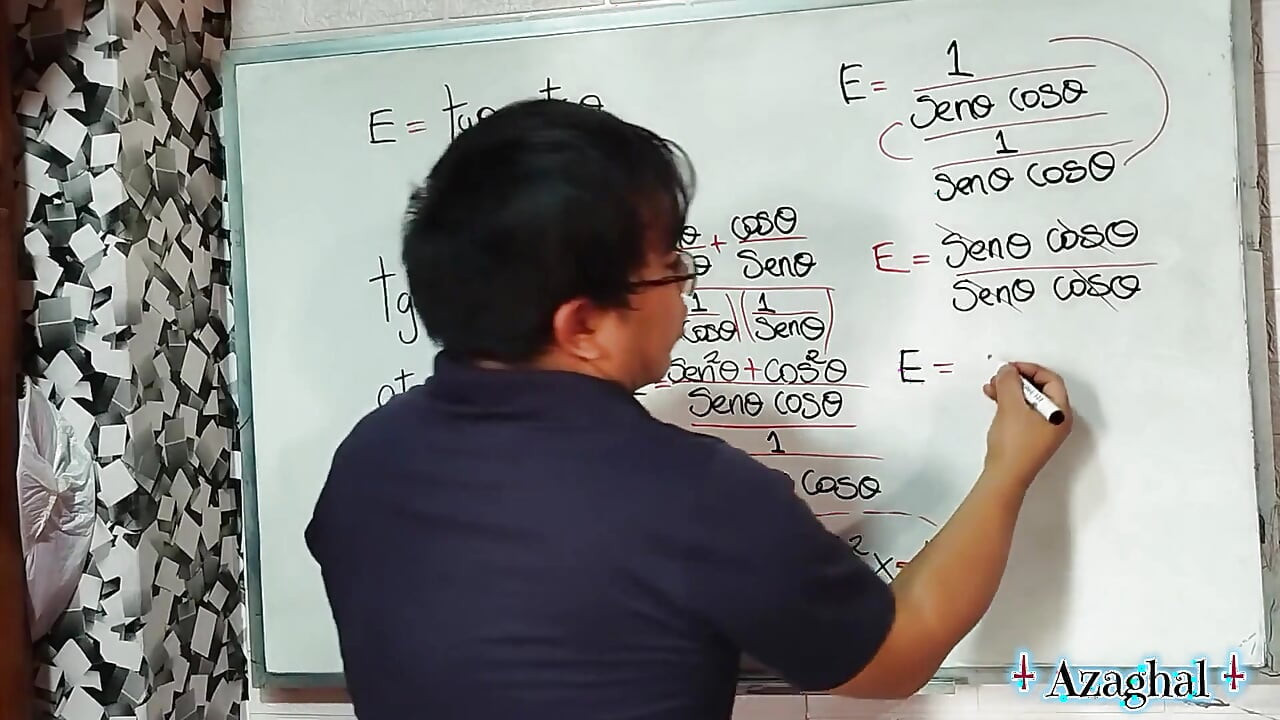 E = tg
tg
θ + cosθ
θ senθ
(1 (1
cosθ) senθ)
sen²θ + cos²θ
senθ cosθ
1
cosθ
² x
E = 1
senθ cosθ
1
senθ cosθ
E = senθ cosθ
senθ cosθ
E =
Azaghal